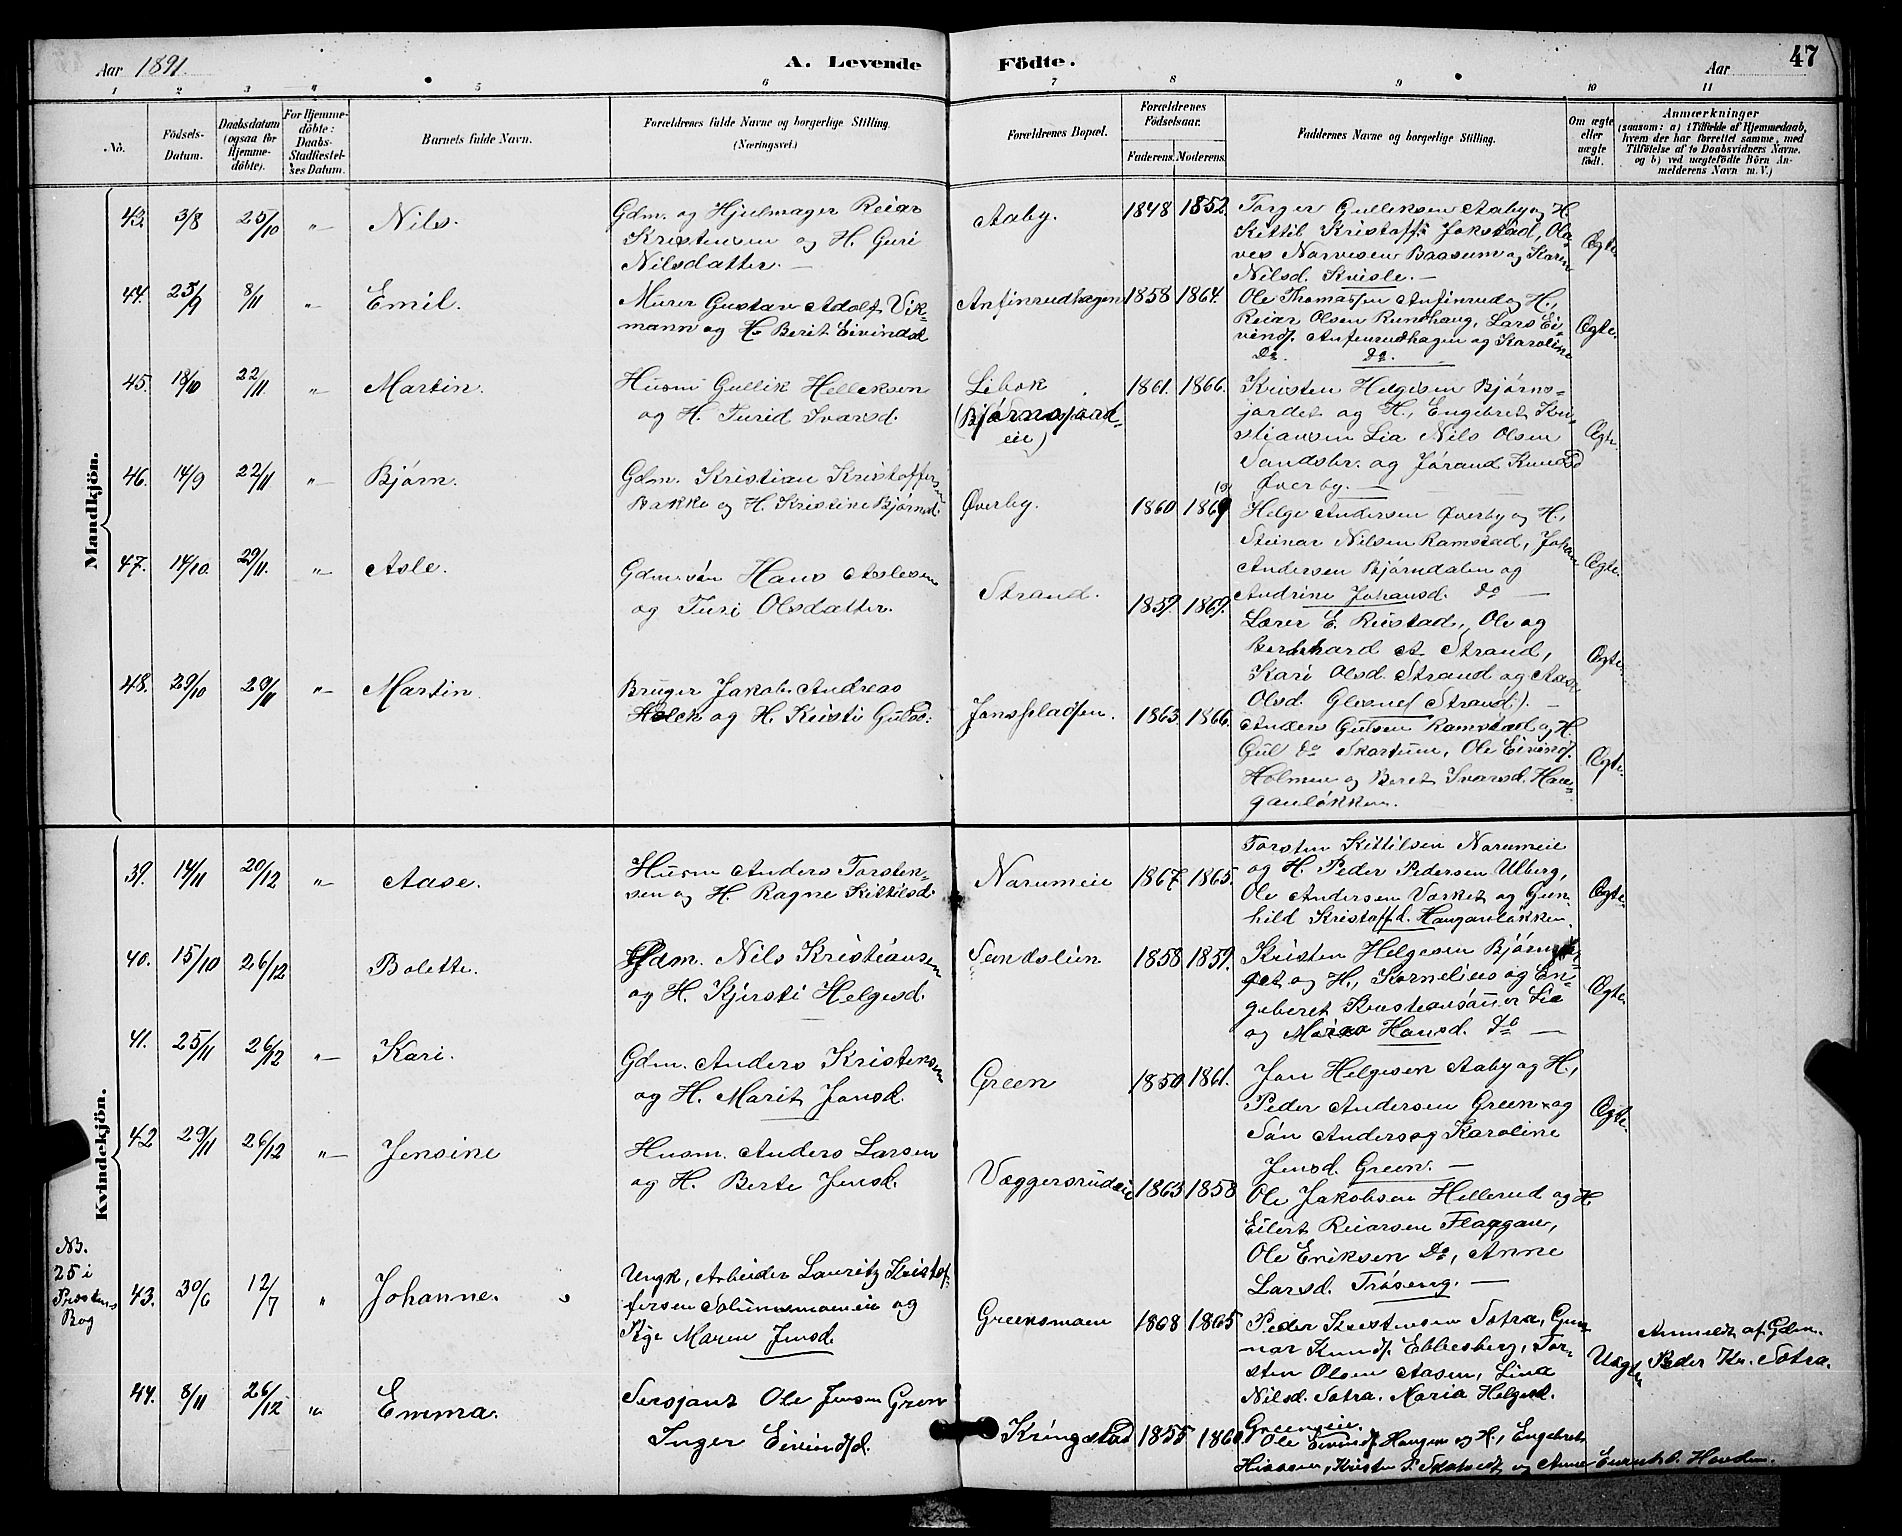 Aar 1891. A. Levende Födte. Aar 47
1 2 3 4 5 6 7 8 9 10 11
No.
Födsels-Datum.
Daabsdatum (ogsaa for Hjemmedöbte).
For Hjemmedöbte: Daabs-Stadfæstelses Datum.
Barnets fulde Navn.
Forældrenes fulde Navne og borgerlige Stilling. (Næringsvei.)
Forældrenes Bopæl.
Forældrenes Födselsaar.
Faderens. Moderens.
Faddernes Navne og borgerlige Stilling.
Om ægte eller uægte födt.
Anmærkninger
(saasom: a) i Tilfælde af Hjemmedaab, hvem der har forrettet samme, med Tilföielse af to Daabsvidners Navne. og b) ved uægtefödte Börn Anmelderens Navn m. V.)
Mandkjön.
43. 3/8 25/10 " Nils.
Gdm. og Hjulmager Reiar
Kristensen og H. Guri
Nilsdatter. —
Aaby. 1848 1852.
Torger Gulliksen Aaby og H.
Kittil Kristoff. Jokstad, Ol
ves Narvesen Baasum og Karen
Nilsd. Kvisle. —
Ægte
44. 25/9 8/11 " Emil.
Murer Gustav Adolf Vik-
mann og H. Berit Eivindsd
Anfinrudhagen 1858 1864.
Ole Thomassen Anfinrud og H.,
Reiar Olsen Rundhaug, Lars Ei-
vinds. Anfinrudhagen og Karoline
Do. Do. —
Ægte.
45. 18/10 22/11 " Martin.
Husm Gullik Helleksen
og H. Turid Ivarsd.
Libok
(Bjørnsjord-
eie)
1861. 1866.
Kristen Helgesen Bjørns-
jordet og H., Engebret Kri-
stiansen Lia Nils Olsen
Sandsbr. og Jørand Knudsd
Øverby. —
Ægte.
46. 14/9 22/11 " Bjørn.
Gdm. Kristian Kristoffersen
Bakke og H. Kristine Bjørnsd.
Øverby. 1860 1869
Helge Andersen Øverby og H.,
Steinar Nilsen Ramstad, Johan
Andersen Bjørndalen og
Andrine Johansd. Do —
Ægte.
47. 14/10. 29/11. " Asle.
Gdmssøn Hans Aslesen
og Turi Olsdatter.
Strand. 1859. 1869.
Lærer E. Ruistad, Ole og
Bernhard A. Strand,
Kari Olsd. Strand og Aase
Olsd. Glesne (Strand). —
Ægte.
48. 29/10 29/11 " Martin.
Bruger Jakob Andreas
Holck og H. Kristi Gulsd.
Jonspladsen. 1863 1866.
Anders Gulsen Ramstad og H.
Gul Do Skartum, Ole Eivinds.
Holmen og Beret Ivarsd. Hau-
ganløkken.
Ægte.
Kvindekjön.
39. 14/11 20/12 " Aase.
Husm Anders Torsten-
sen og H. Ragne Kittilsd.
Narumeie 1867. 1865.
Torsten Kittilsen Narumeie
og H. Peder Pedersen Ulberg,
Ole Andersen Værket og Gun-
hild Kristoffd. Hauganløkken
Ægte.
40. 15/10 26/12 Bolette.
Gdm. Nils Kristiansen
og H. Kjersti Helgesd.
Sandslien 1858 1859.
Kristen Helgesen Bjørnsjor-
det og H., Kornelius og En-
gebret Kristiansønner Lia
og Maren Hansd. Do —
Ægte.
41. 25/11 26/12 " Kari.
Gdm. Anders Kristensen
og H. Marit Jonsd.
Green 1850 1861.
Jon Helgesen Aaby og H.,
Peder Andersen Green og
Søn Anders og Karoline
Jensd. Green. —
Ægte.
42 29/11 26/12 " Jensine
Husm. Anders Larsen
og H. Berte Jensd.
Væggersrudeie 1863 1858
Ole Jakobsen Hellerud og H
Eilert Reiarsen Flaggan,
Ole Eriksen Do, Anne
Larsd. Trøseng. —
NB.
25 i
Præstens
Bog
43. 30/6 12/7 " Johanne.
Ungk, Arbeider Lauritz Kristof-
fersen og
Pige Maren Jensd.
Greensmoen 1868 1865
Peder Kristensen Sotra, Gun-
nar Knuds. Ebbesberg, Tor-
sten Olsen Aasen, Lina
Nilsd. Sotra. Maria Helgesd.
Greeneie.
Uægte
Anmeldt af Gdm.
Peder Kr. Sotra.
44. 8/11 26/12 " Emma.
Sersjant Ole Jensen Green
Inger Eivindsd.
Kringstad 1855 1860
Ole Eivinds Haugen og H., Engebret
Kristen P. og Anne